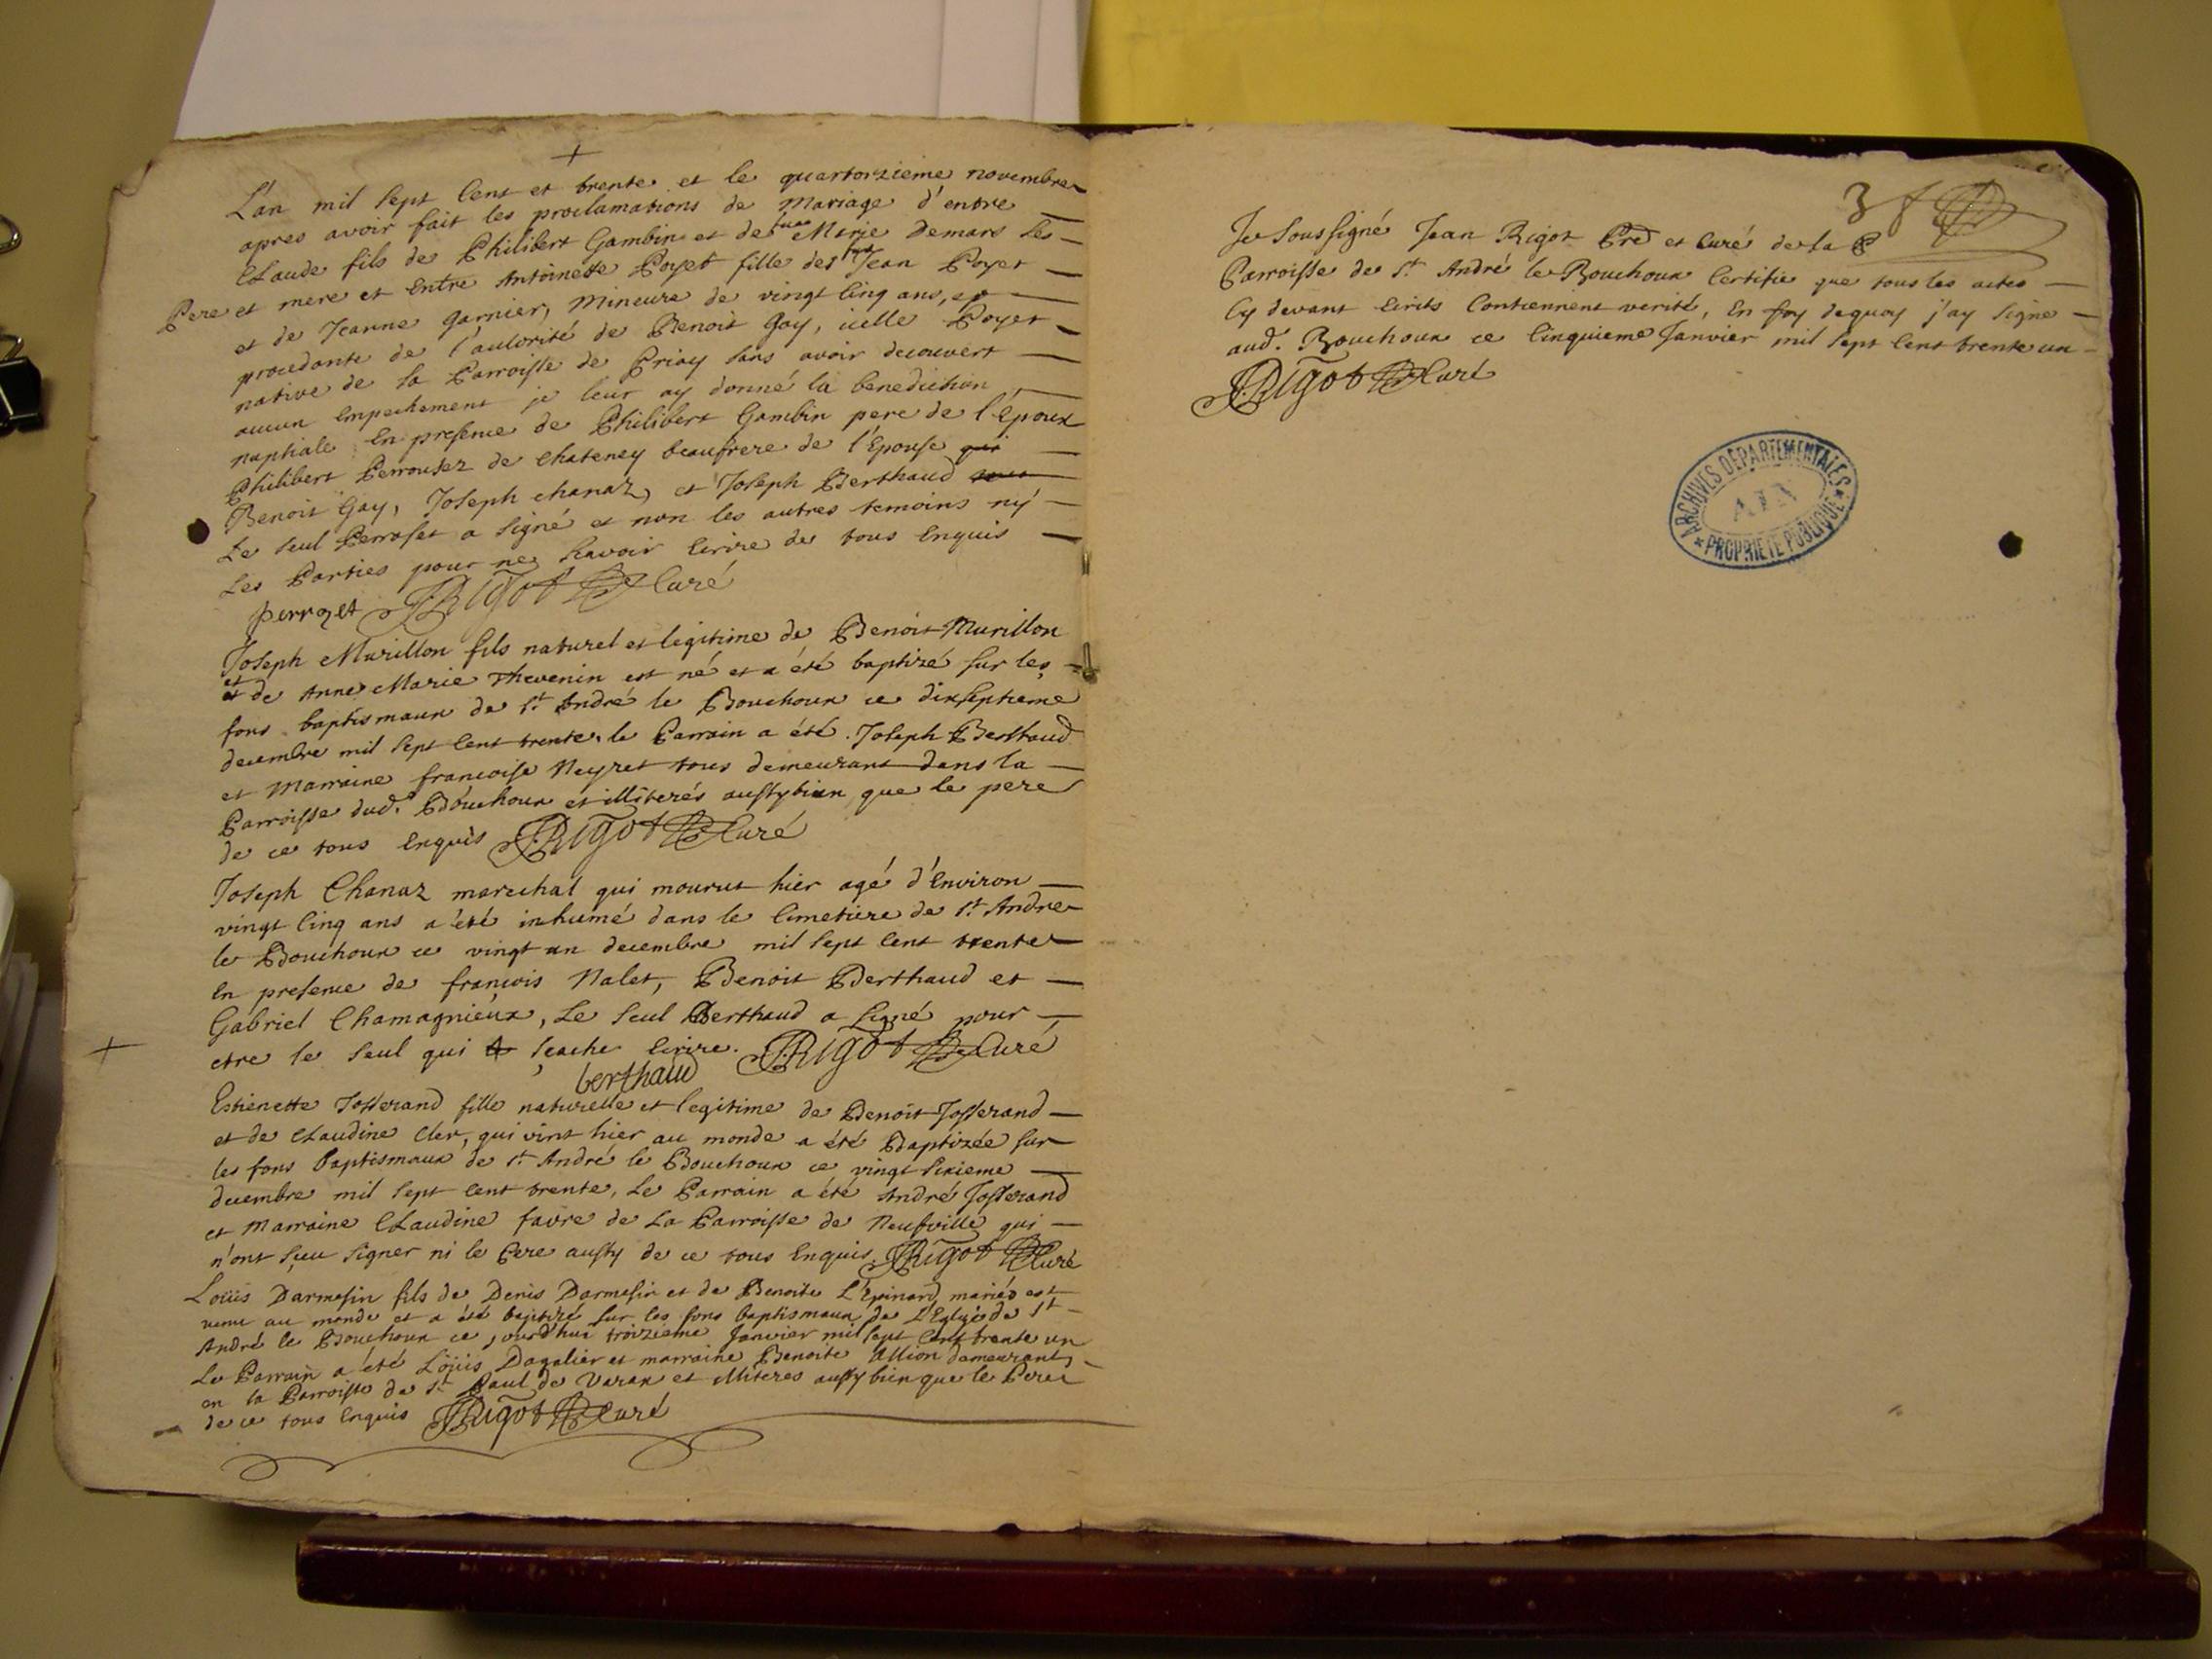 L'an mil sept Cent et trente et le quartorzieme novembre
apres avoir fait les proclamations de Mariage d'entre
Claude fils de Philibert Gambin et de Marie Demars Ses
Pere et mere et Entre Antoinette Poyet fille de Jean Poyet
et de Jeanne Garnier, Mineure de vingt Cinq ans, et
procedante de l'autorité de Benoit Gay, icelle Poyet
native de La Parroisse de Priay sans avoir decouvert
aucun Empechement je leur ay donné la benediction
nuptiale En presence de Philibert Gambin pere de l'Epoux
Philibert Perrouset de Chateney beaufrere de l'Epouse qui
Benoit Gay, Joseph chanaz, et Joseph Berthaud
Le Seul Perroset a Signé et non les autres temoins ny
Les Parties pour ne Scavoir Ecrire de tous Enquis
perrozet JRigot Curé
Joseph Murillon fils naturel et legitime de Benoit Murillon
et de Anne Marie Thevenin est né et a été baptizé sur les
fons baptismaux de St André le Bouchoux ce dixseptieme
decembre mil Sept Cent trente, le Parrain a été Joseph Berthaud
et Marraine francoise Neyret tous demeurant dans la
Parroisse dud. Bouchoux et illiterés aussybien que le pere
de ce tous Enquis JRigot Curé
Joseph Chanaz marechal qui mourut hier agé d'Environ
vingt Cinq ans a été inhumé dans le Cimetiere de St Andre
le Bouchoux ce vingt un decembre mil Sept Cent trente
En presence de françois Nalet, Benoit Berthaud et
Gabriel Chamagnieux, Le Seul Berthaud a Signé pour
etre le Seul qui sçache Ecrire. JRigot Curé
berthaud
Estienette Josserand fille naturelle et legitime de Benoit Josserand
et de Claudine Cler, qui vint hier au monde a été Baptizée sur
les fons Baptismaux de St André le Bouchoux ce vingt Sixieme
decembre mil Sept Cent trente, Le Parrain a été André Josserand
et Marraine Claudine favre de La Parroisse de Neufville qui
n'ont sçeu Signer ni le Pere aussy de ce tous Enquis. JRigot Curé
Loüis Darmesin fils de Denis Darmesin et de Benoite L'Epinard mariés est
venu au monde et a été baptizé sur les fons baptismaux de L'Eglise de St
André le Bouchoux ce jourd'hui troizieme Janvier mil Sept Cent trente un
Le Parrain a été Loüis Dagalier et marraine Benoite Allion demeurants
en la Parroisse de St Paul de Varax et illiteres aussy bien que le Pere
de ce tous Enquis JRigot Curé
3
Je Soussigné Jean Rigot Pre et Curé de la
Parroisse de St André le Bouchoux Certifie que tous les actes
Cy devant Ecrits Contiennent verité, En foy dequoy j'ay Signé
aud. Bouchoux ce Cinquieme Janvier mil Sept Cent trente un
JRigot Curé
ARCHIVES DEPARTEMENTALES
AIN
PROPRIETE PUBLIQUE